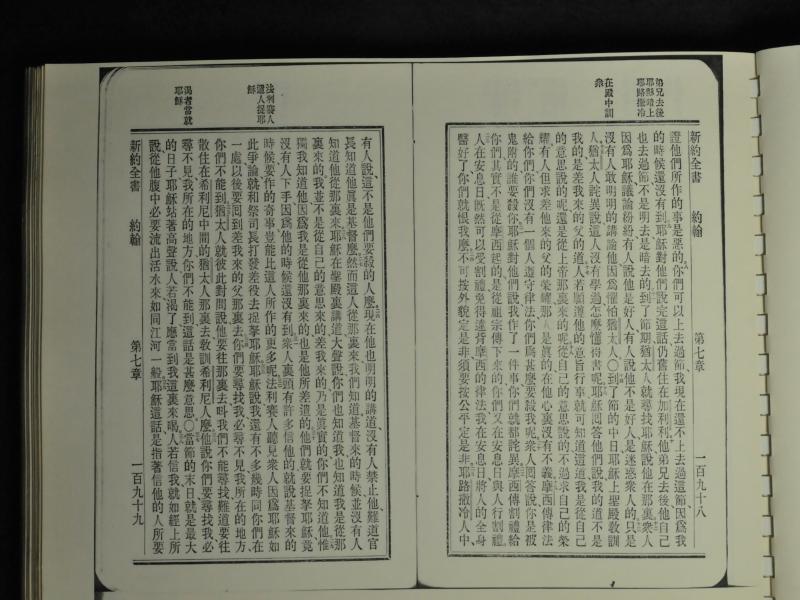 弟兄去後
耶穌暗上
耶路撒冷
在殿中訓
衆
新約全書 約翰 第七章 一百九十八
證他們所作的事是惡的你們可以上去過節我現在還不上去過這節因爲我
的時候還沒有到耶穌對他們說完這話仍舊住在加利利他弟兄去後他自己
也去過節不是明去是暗去的到了節期猶太人就尋找耶穌說他在那裏衆人
因爲耶穌議論紛紛有人說他是好人有人說他不是好人是迷惑衆人的只是
沒有人敢明明的講論他因爲懼怕猶太人〇到了節的中日耶穌上聖殿敎訓
人猶太人詫異說這人沒有學過怎麽懂得書呢耶穌囘答他們說我的道不是
我的是差我來的父的道人若願遵他的意旨行事就可知道這道我是從自己
的意思說的呢還是從上帝那裏來的呢從自己的意思說的不過求自己的榮
耀有人但求差他來的父的榮耀那人是眞的在他心裏沒有不義摩西傳律法
給你們你們沒有一個人遵守律法你們爲甚麽要殺我呢衆人囘答說你是被
鬼附的誰要殺你耶穌對他們說我作了一件事你們就都詫異摩西傳割禮給
你們其實不是從摩西起的是從祖宗傳下來的你們又在安息日與人行割禮
人在安息日既然可以受割禮免得違背摩西的律法我在安息日將人的全身
醫好了你們就恨我麽不可按外貌定是非須要按公平定是非耶路撒冷人中
法利賽人
遣人捉耶
穌
渴者當就
耶穌
有人說這不是他們要殺的人麽現在他也明明的講道沒有人禁止他難道官
長知道他眞是基督麽然而這人從那裏來我們知道基督來的時候並沒有人
知道他從那裏來耶穌在聖殿裏講道大聲說你們也知道我也知道我是從那
裏來的我並不是從自己的意思來的差我來的乃是眞實的你們不知道他惟
獨我知道他因爲我是從他那裏來的也是他所差的他們就要捉拏耶穌竟
沒有人下手因爲他的時候還沒有到衆人裏頭有許多信他的就說基督來的
時候要作的奇事豈能比這人所作的更多呢法利賽人聽見衆人因爲耶穌如
此爭論就和祭司長打發差役去捉拏耶穌耶穌說我還有不多幾時同你們在
一處以後要囘到差我來的父那裏去你們要尋找我必尋不見我所在的地方
你們不能到猶太人就彼此對問說他要往那裏去呌我們不能尋找難道要往
散住在希利尼中間的猶太人那裏去敎訓希利尼人麽他說你們要尋找我必
尋不見我所在的地方你們不能到這話是甚麽意思〇當節的末日就是最大
的日子耶穌站著高聲說人若渴了應當到我這裏來喝人若信我就如經上所
說從他腹中必要流出活水來如同江河一般耶穌這話是指著信他的人所要
新約全書 約翰 第七章 一百九十九